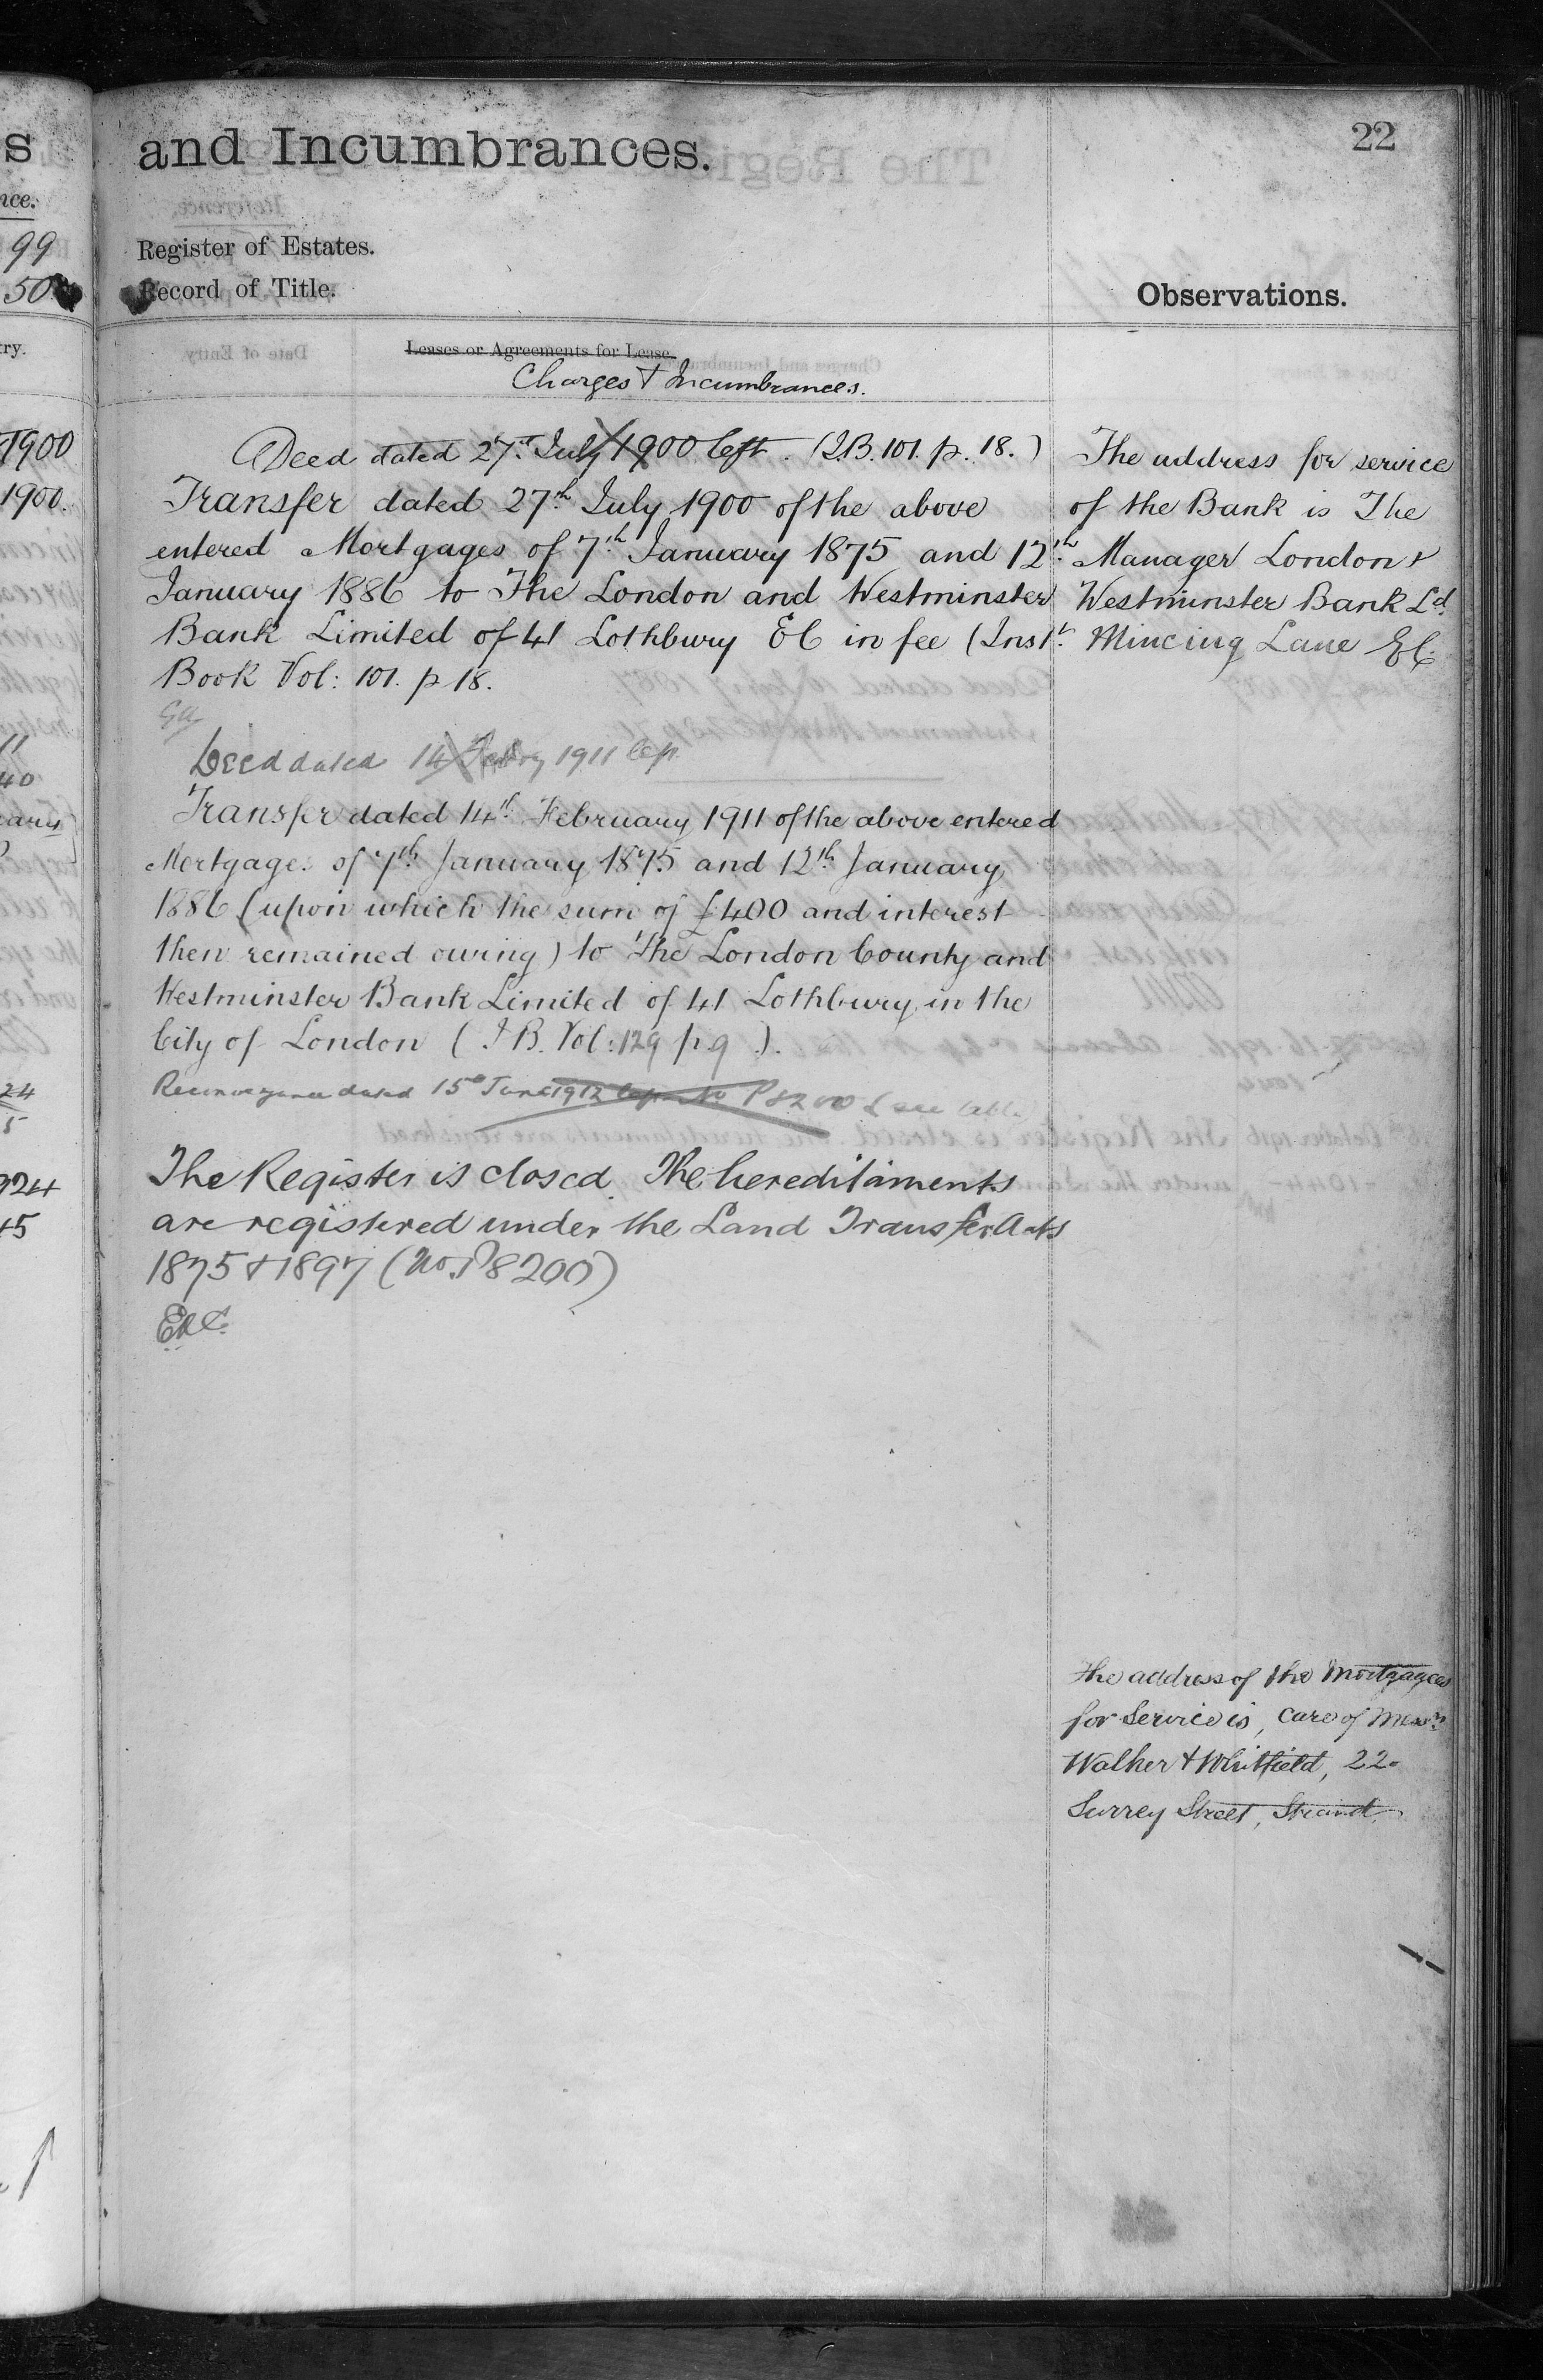 and Incumbrances.
22
Register of Estates.
Record of Title.
Observations.
Leases or Agreements for Lease.
Charges & Incumbrances.
Deed dated 27th July 1900 left. (I.B. 101. p. 18.)
Transfer dated 27th July 1900 of the above
entered Mortgages of 7th January 1875 and 12th
January 1886 to The London and Westminster
Bank Limited of 41 Lothbury EC in fee (Inst.
Book Vol: 101. p 18.
Deed dated 14 Febry 1911 left
Transfer dated 14th February 1911 of the above entered
Mortgages of 7th January 1875 and 12th January
1886 (upon which the sum of £400 and interest
then remained owing) to The London County and
Westminster Bank Limited of 41 Lothbury in the
City of London (I B. Vol: 129 p 9).
Reconveyance dated 15th June 1912 left No P8200 (see
The Register is closed. The hereditaments
are registered under the Land Transfer Acts
1875 & 1897 (No. P8200)
The address for service
of the Bank is The
Manager London &
Westminster Bank Ld.
Mincing Lane EC.
The address of the Mortgagees
for Service is, Care of Messrs
Walker & Whitfield, 22
Surrey Street, Strand.
s
nce.
99
50
ry.
1900
1900.
11
40
24
5
924
45